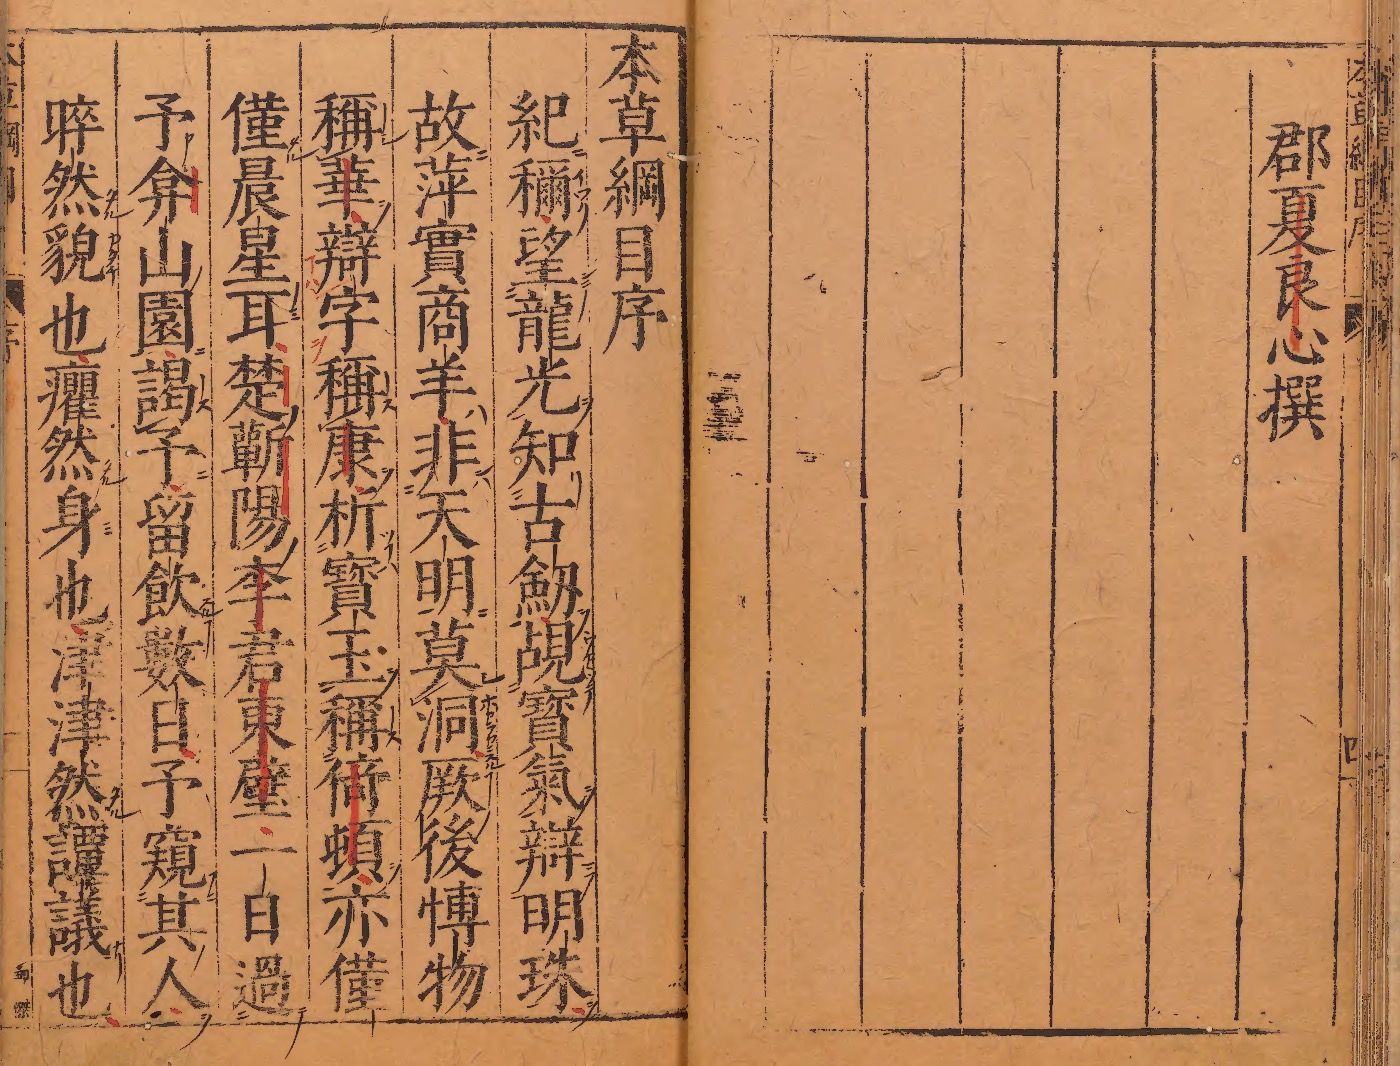 郡夏良心撰
本草綱目序
紀稱望龍光知古劒覘寶氣辯明珠
故萍實商羊非天明莫洞厥後愽物
稱華辯字稱康析寶玉稱倚頓亦僅
僅晨星耳楚蘄陽李君東璧一日過
予弇山園謁予留飲數日予窺其人
睟然貌也癯然身也津津然譚議也